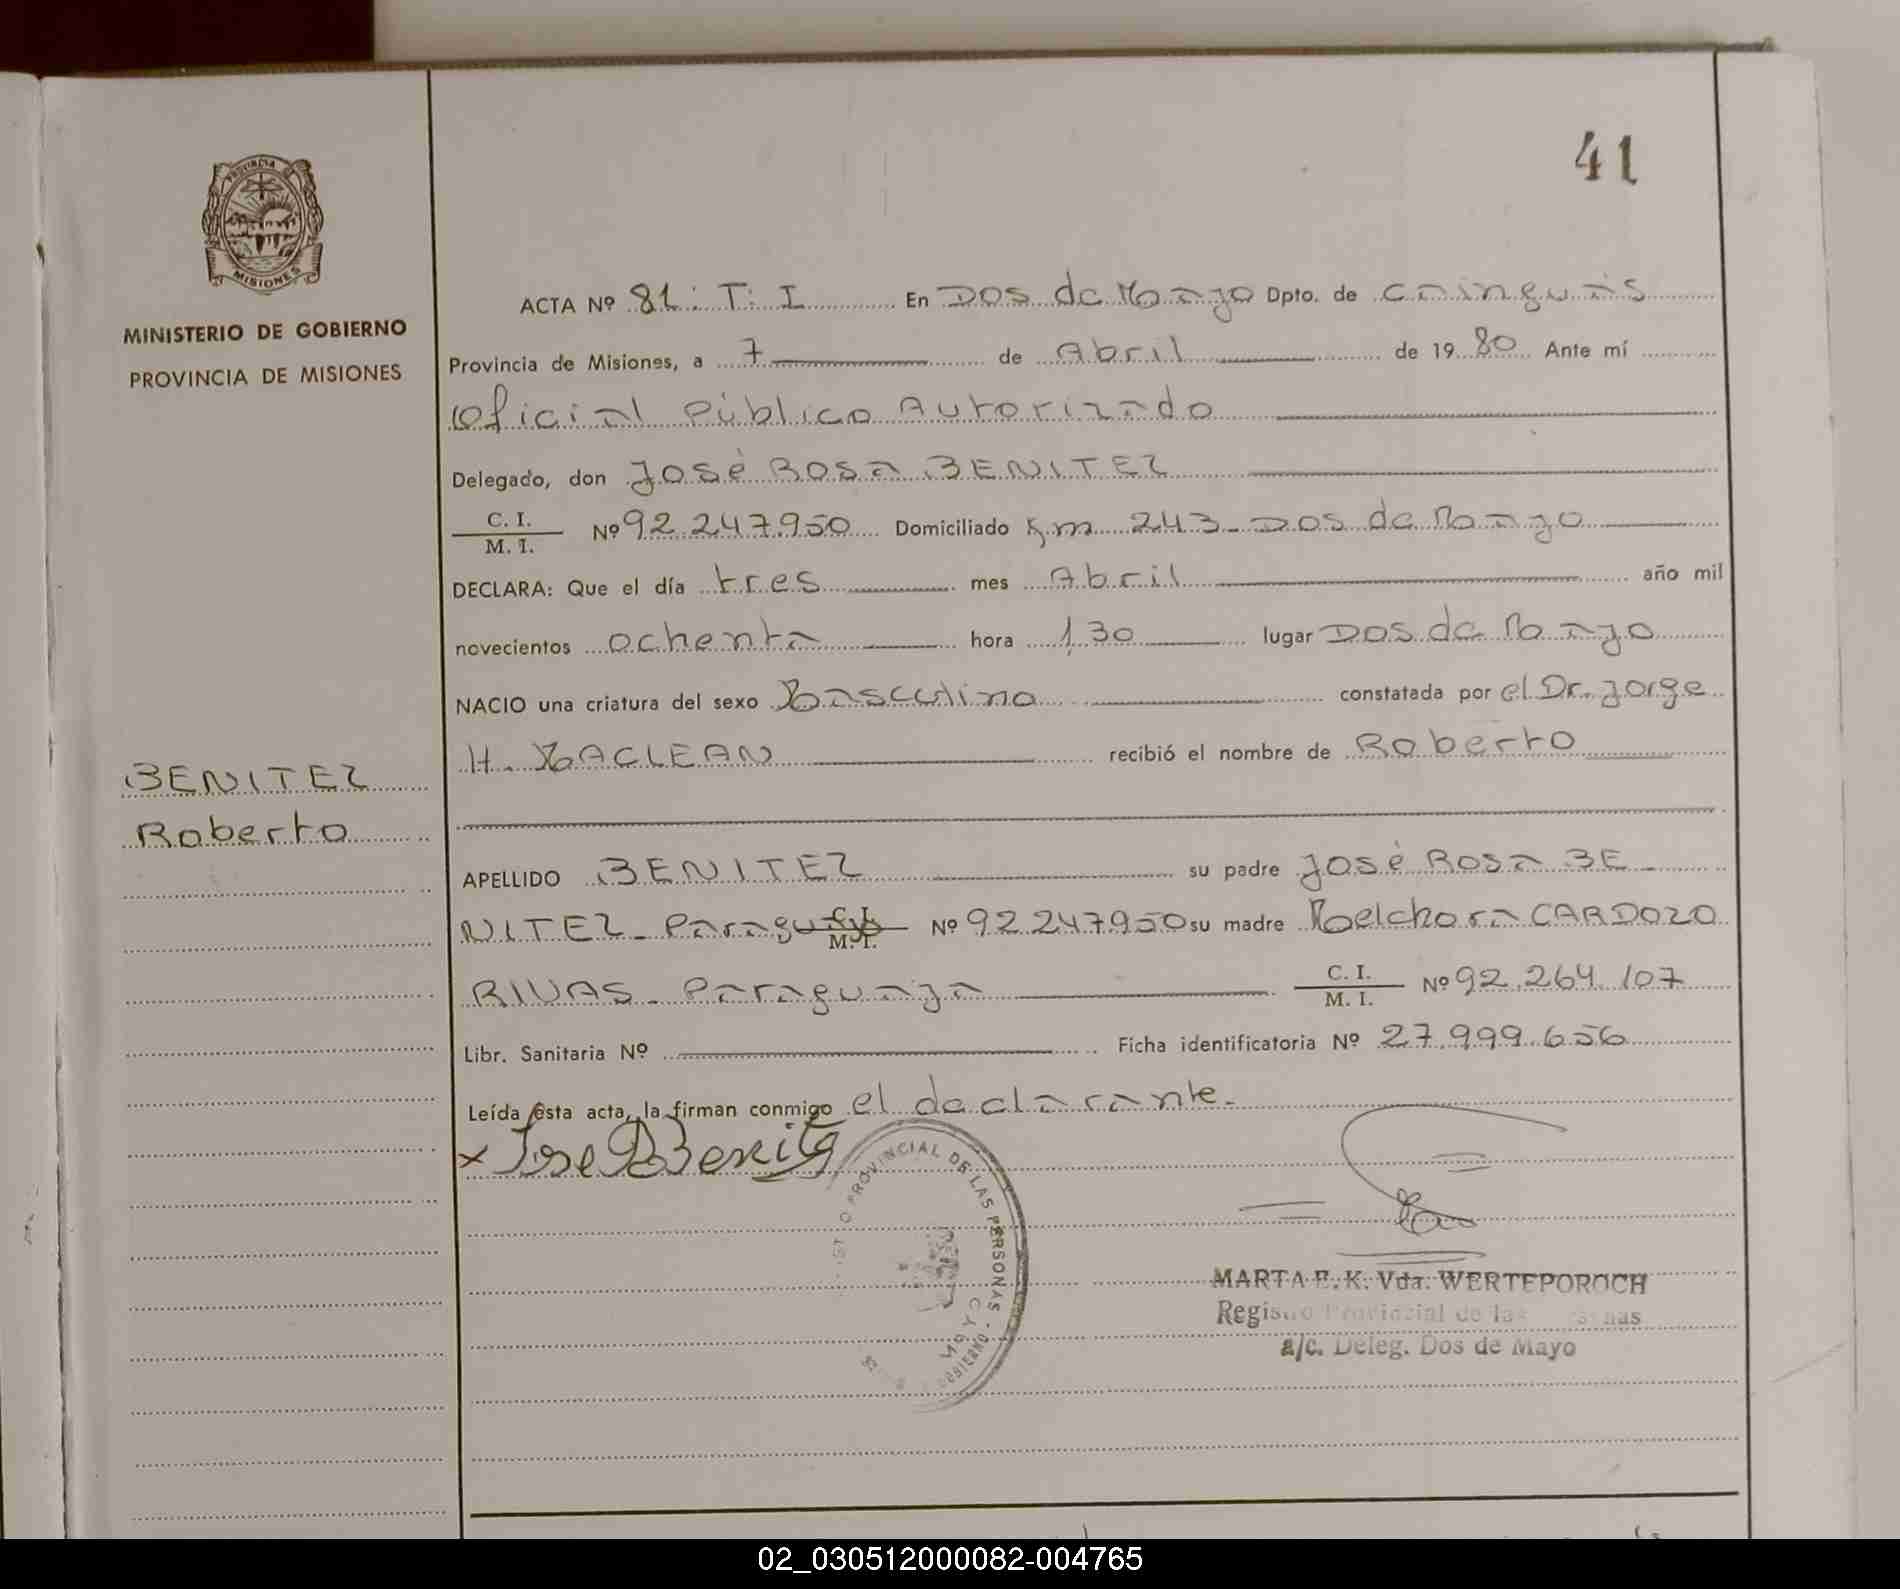 41
PROVINCIA DE
MISIONES
MINISTERIO DE GOBIERNO
PROVINCIA DE MISIONES
BENITEZ
Roberto
ACTA Nº 81: T: I En Dos de Mayo Dpto. de Cainguás
Provincia de Misiones, a 7 de Abril de 1980 Ante mí
Oficial Público Autorizado
Delegado, don José Rosa BENITEZ
C. I. / M. I. Nº 92.247.950 Domiciliado Km 243 - Dos de Mayo
DECLARA: Que el día tres mes Abril año mil
novecientos ochenta hora 1,30 lugar Dos de Mayo
NACIO una criatura del sexo Masculino constatada por el Dr. Jorge
H. MACLEAN recibió el nombre de Roberto
APELLIDO BENITEZ su padre José Rosa BE-
NITEZ - Paraguayo C. I. / M. I. Nº 92.247.950 su madre Melchora CARDOZO
RIVAS - Paraguaya C. I. / M. I. Nº 92.264.107
Libr. Sanitaria Nº Ficha identificatoria Nº 27.999.656
Leída esta acta, la firman conmigo el declarante.-
x Jose R Benitez
PROVINCIAL DE LAS PERSONAS -
MARTA E. K. Vda. WERTEPOROCH
Registro Provincial de las Personas
a/c. Deleg. Dos de Mayo
02_030512000082-004765